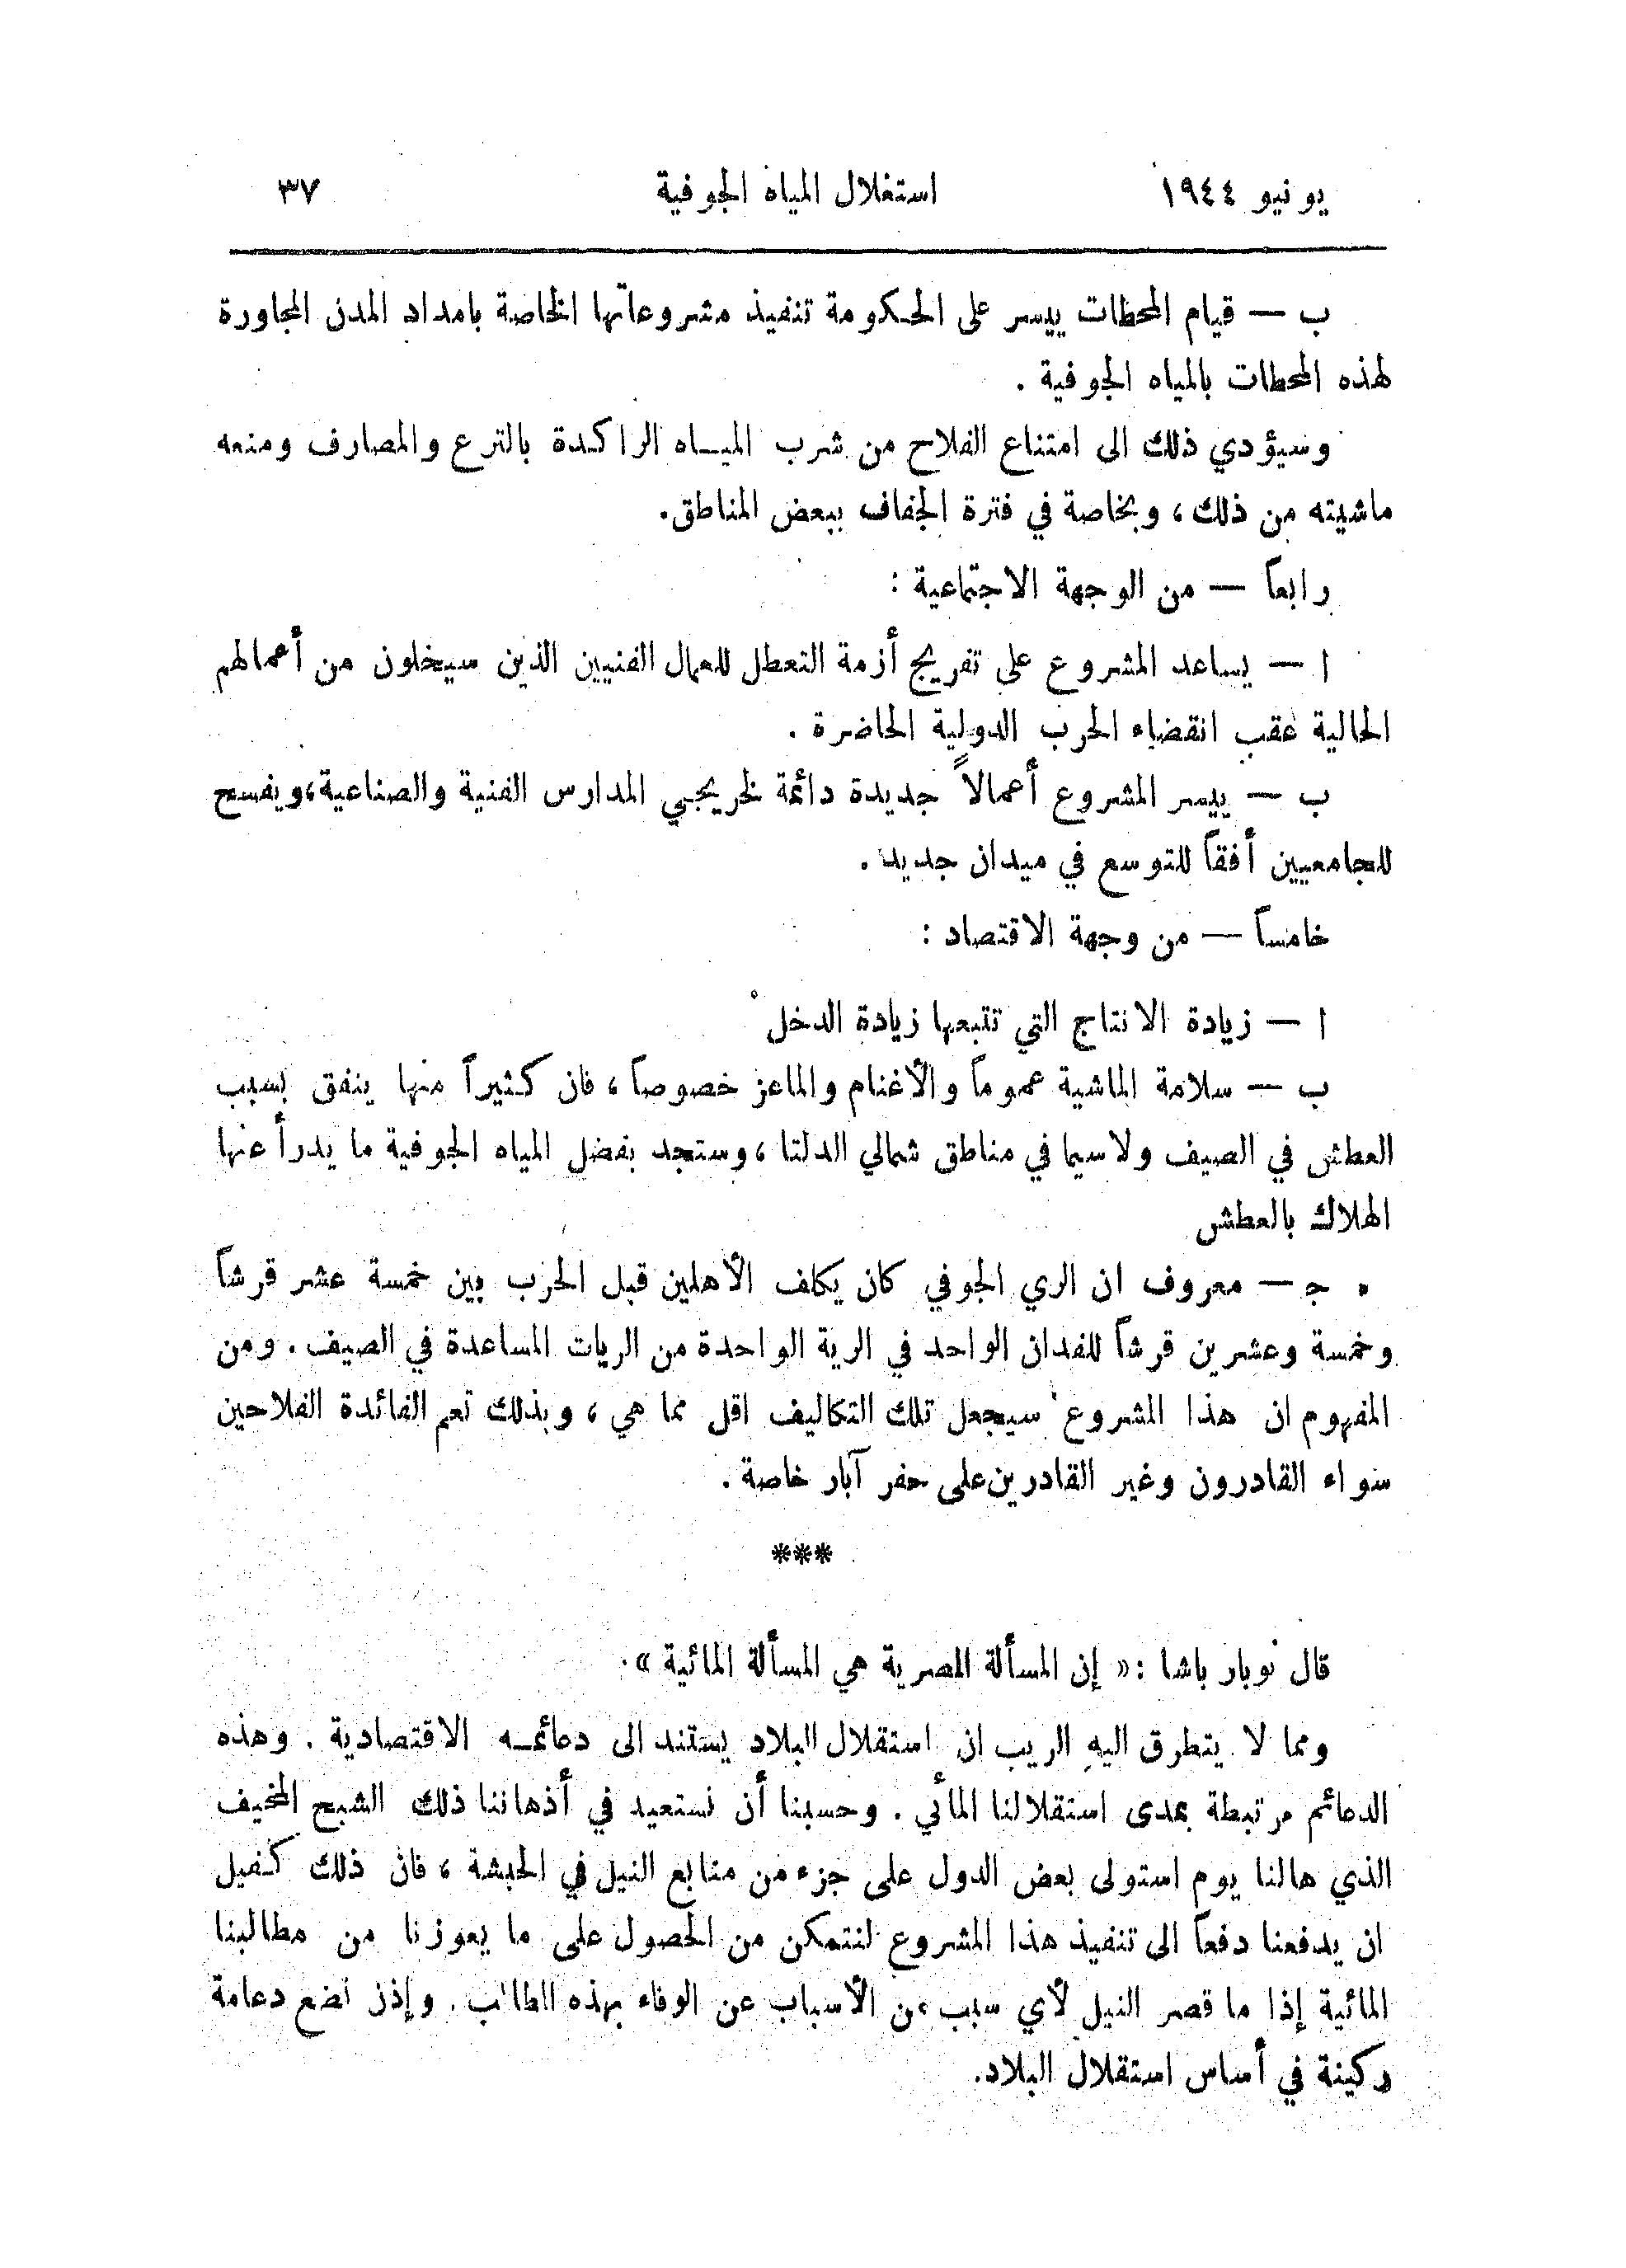 يونيو ١٩٤٤ استغلال المياه الجوفية ٣٧
ب — قيام المحطات ييسر على الحكومة تنفيذ مشروعاتها الخاصة بامداد المدن المجاورة
لهذه المحطات بالمياه الجوفية .
وسيؤدي ذلك الى امتناع الفلاح من شرب الميـاه الراكدة بالترع والمصارف ومنعه
ماشيته من ذلك ، وبخاصة في فترة الجفاف ببعض المناطق.
رابعاً — من الوجهة الاجتماعية :
ا — يساعد المشروع على تفريج أزمة التعطل للعمال الفنيين الذين سيخلون من أعمالهم
الحالية عقب انقضاء الحرب الدولية الحاضرة .
ب — ييسر المشروع أعمالاً جديدة دائمة لخريجي المدارس الفنية والصناعية، ويفسح
للجامعيين أفقاً للتوسع في ميدان جديد .
خامساً — من وجهة الاقتصاد :
ا — زيادة الانتاج التي تتبعها زيادة الدخل
ب — سلامة الماشية عموماً والأغنام والماعز خصوصاً ، فان كثيراً منها ينفق بسبب
العطش في الصيف ولاسيما في مناطق شمالي الدلتا ، وستجد بفضل المياه الجوفية ما يدرأ عنها
الهلاك بالعطش
ج — معروف ان الري الجوفي كان يكلف الأهلين قبل الحرب بين خمسة عشر قرشاً
وخمسة وعشرين قرشاً للفدان الواحد في الرية الواحدة من الريات المساعدة في الصيف . ومن
المفهوم ان هذا المشروع سيجعل تلك التكاليف اقل مما هي ، وبذلك تعم الفائدة الفلاحين
سواء القادرون وغير القادرين على حفر آبار خاصة .
***
قال نوبار باشا : « إن المسألة المصرية هي المسألة المائية » .
ومما لا يتطرق اليه الريب ان استقلال البلاد يستند الى دعائمـه الاقتصادية . وهذه
الدعائم مرتبطة بمدى استقلالنا المائي . وحسبنا أن نستعيد في أذهاننا ذلك الشبح المخيف
الذي هالنا يوم استولى بعض الدول على جزء من منابع النيل في الحبشة ، فان ذلك كفيل
ان يدفعنا دفعاً الى تنفيذ هذا المشروع لنتمكن من الحصول على ما يعوزنا من مطالبنا
المائية إذا ما قصر النيل لأي سبب من الأسباب عن الوفاء بهذه المطالب . وإذن نضع دعامة
ركينة في أساس استقلال البلاد.